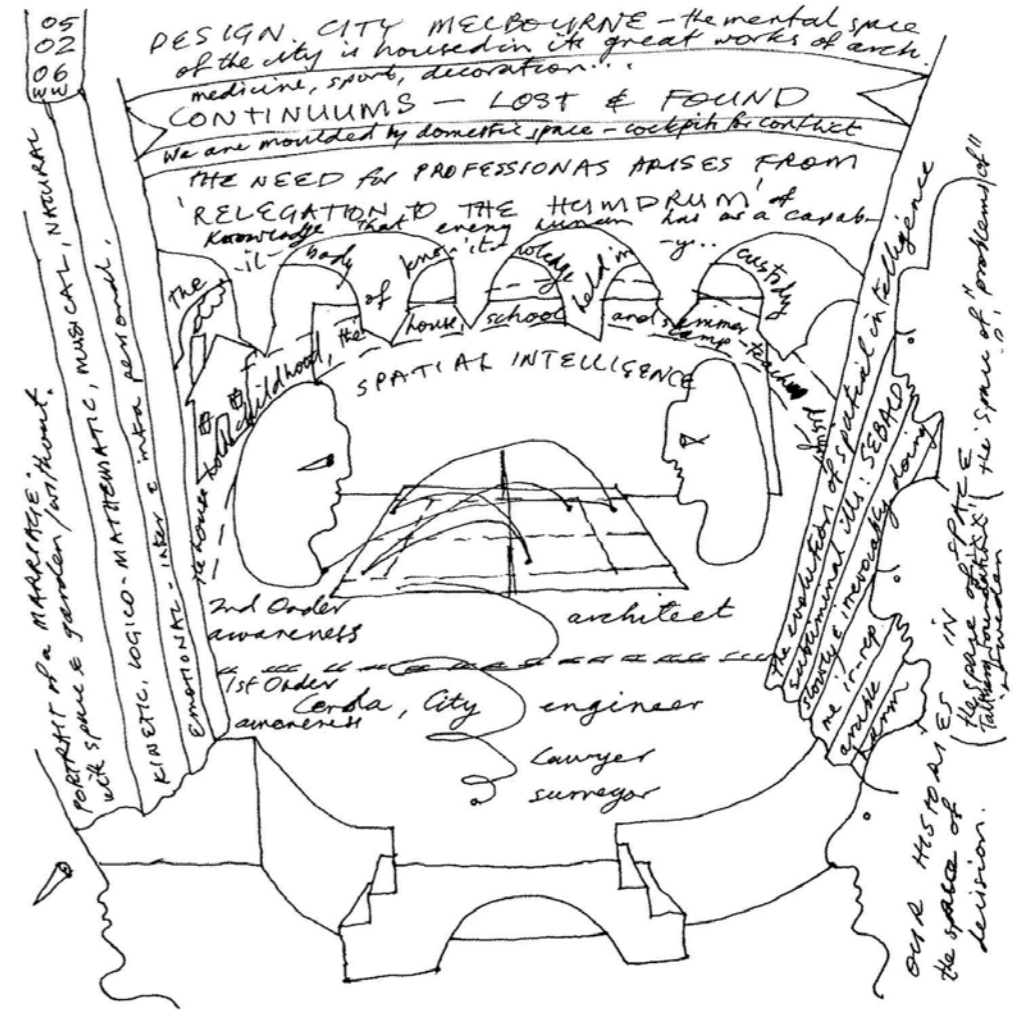 05
02
06
DESIGN CITY MELBOURNE - the mental space
of the city is housed in its great works of arch.
medicine, sport, decoration...
CONTINUUMS - LOST & FOUND
We are moulded by domestic space - cockpits for conflict
'THE NEED for PROFESSIONAS ARISES FROM
'RELEGATION TO THE HUMDRUM' of
Knowledge that every human has as a capab-
-il- -it- -y...
The body of knowledge held in custody
childhood, the house, school and summer camp -
SPATIAL INTELLIGENCE
2nd Order
awareness
architect
1st Order
awareness
Cerda, City engineer
Lawyer
surveyor
PORTRAIT of a MARRIAGE:
with space & garden/without.
KINETIC, LOGICO-MATHEMATIC, MUSICAL, NATURAL
EMOTIONAL - inter & intra personal.
The evolution of spatial intelligence
subliminal ills: SEBALD
slowly & irrevocably doing
me ir-rep
arable
harm
OUR HISTORIES IN SPACE
the space of
decision.
(the space of "problems of"